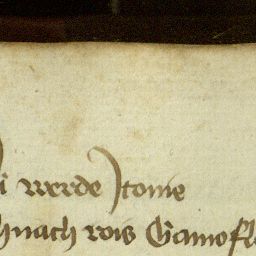 i werde Itome
hnach wis Gamofl